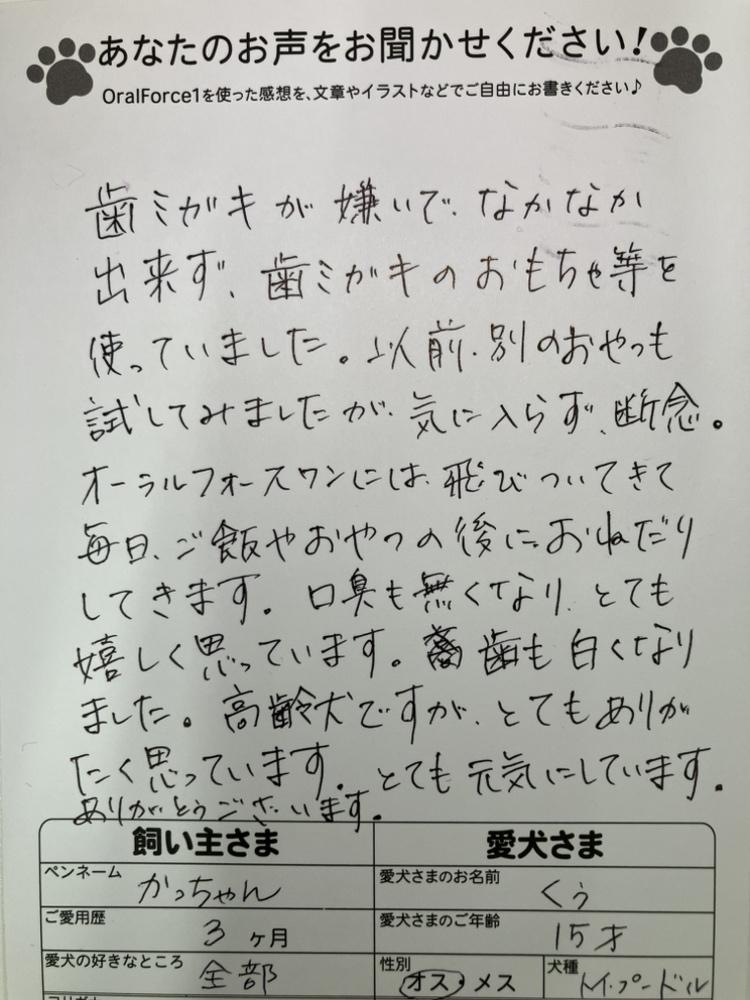 あなたのお声をお聞かせください!
OralForce1を使った感想を、文章やイラストなどでご自由にお書きください♪
歯ミガキが嫌いで、なかなか
出来ず、歯ミガキのおもちゃ等を
使っていました。以前、別のおやつも
試してみましたが、気に入らず、断念。
オーラルフォースワンには、飛びついてきて
毎日、ご飯やおやつの後におねだり
してきます。口臭も無くなり、とても
嬉しく思っています。歯も白くなり
ました。高齢犬ですが、とてもありが
たく思っています。とても元気にしています。
ありがとうございます。
飼い主さま 愛犬さま
ペンネーム かっちゃん 愛犬さまのお名前 くぅ
ご愛用歴 3ヶ月 愛犬さまのご年齢 15才
愛犬の好きなところ 全部 性別 オス・メス 犬種 トイ・プードル